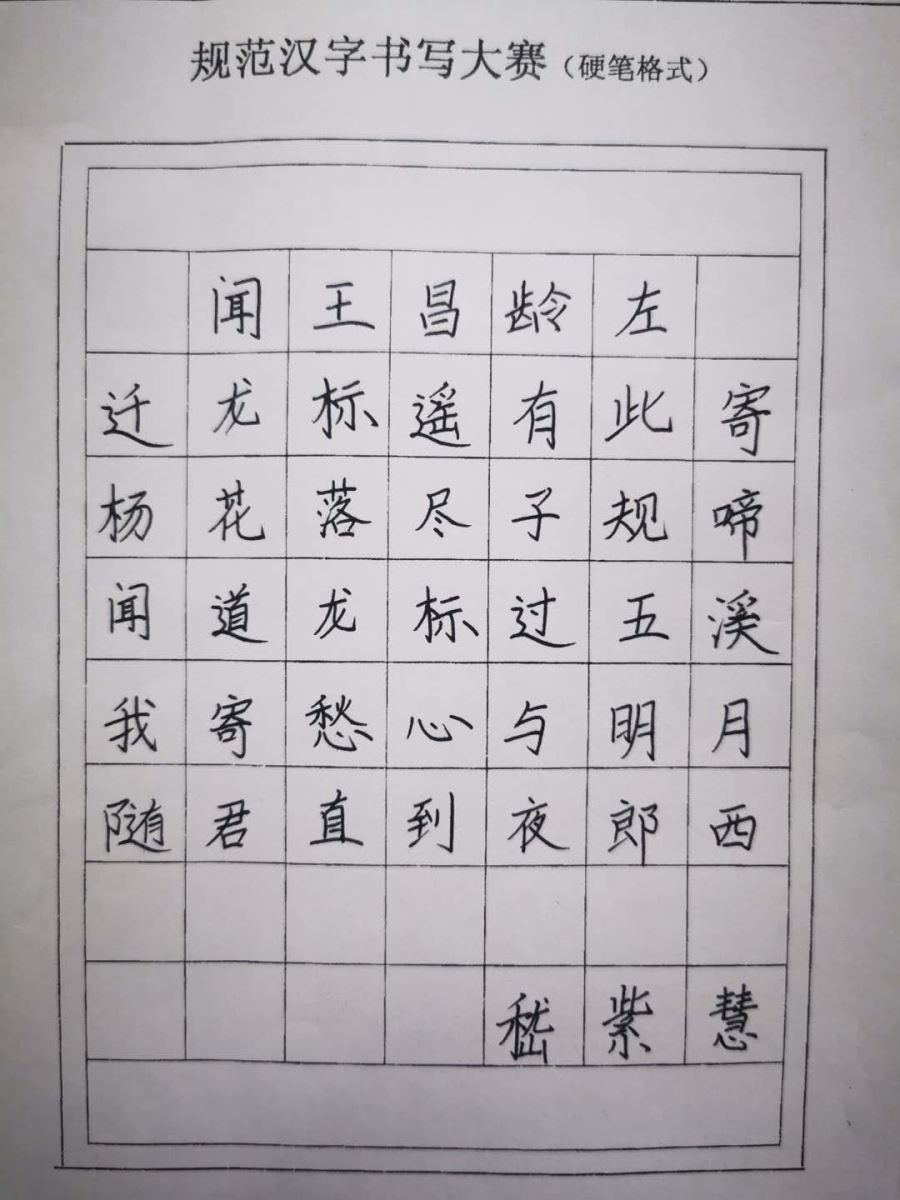 规范汉字书写大赛（硬笔格式）
闻王昌龄左
迁龙标遥有此寄
杨花落尽子规啼
闻道龙标过五溪
我寄愁心与明月
随君直到夜郎西
嵇紫慧